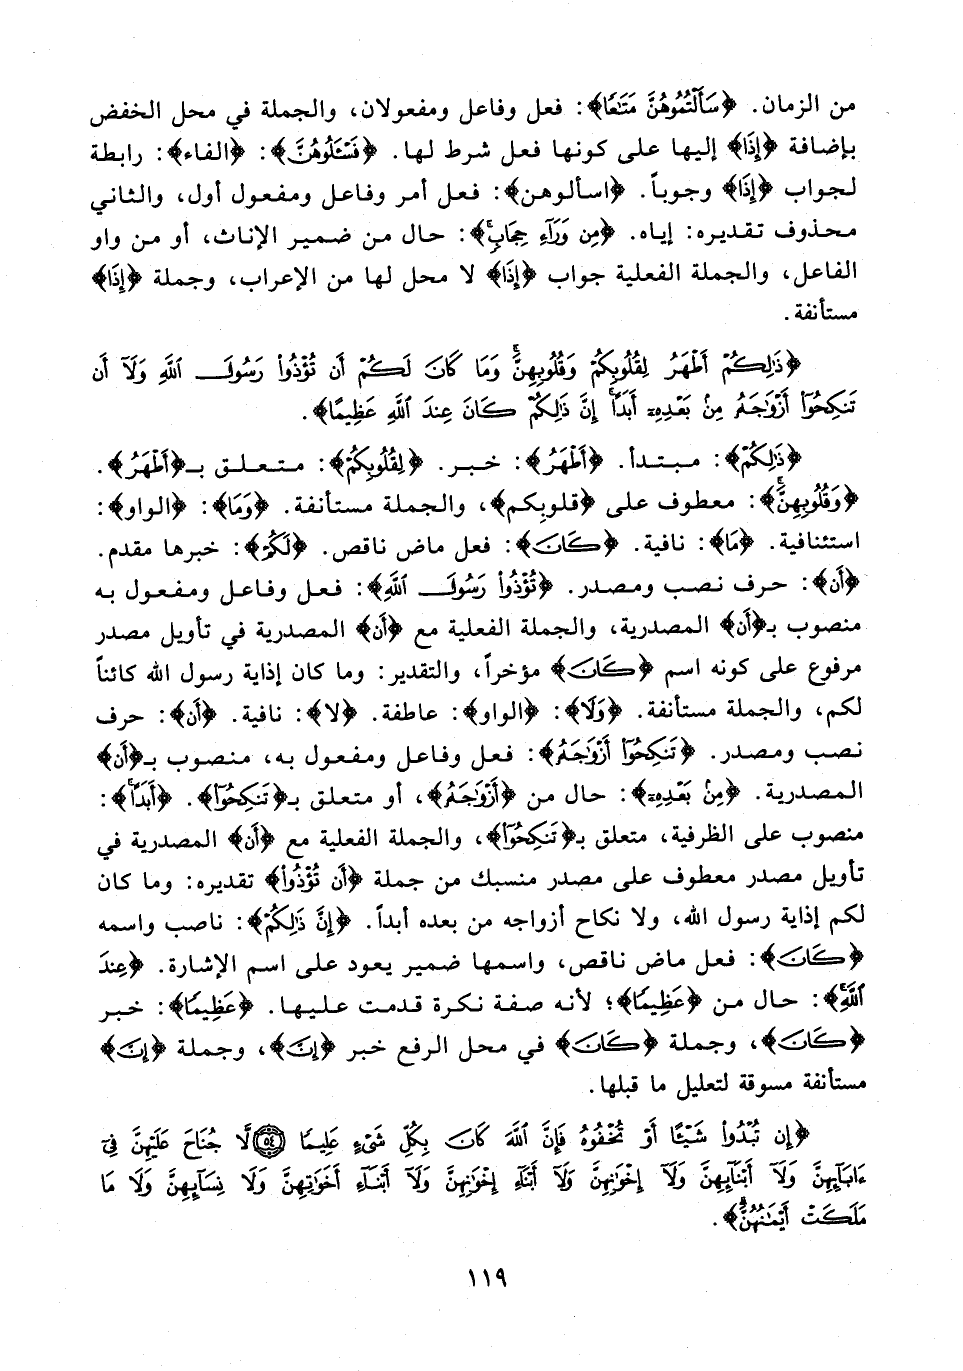 من الزمان. ﴿سَأَلْتُمُوهُنَّ مَتَٰعًا﴾: فعل وفاعل ومفعولان، والجملة في محل الخفض
بإضافة ﴿إِذَا﴾ إليها على كونها فعل شرط لها. ﴿فَسْـَٔلُوهُنَّ﴾: ﴿الفاء﴾: رابطة
لجواب ﴿إِذَا﴾ وجوباً. ﴿اسألوهن﴾: فعل أمر وفاعل ومفعول أول، والثاني
محذوف تقديره: إياه. ﴿مِن وَرَآءِ حِجَابٍۚ﴾: حال من ضمير الإناث، أو من واو
الفاعل، والجملة الفعلية جواب ﴿إِذَا﴾ لا محل لها من الإعراب، وجملة ﴿إِذَا﴾
مستأنفة.
﴿ذَٰلِكُمْ أَطْهَرُ لِقُلُوبِكُمْ وَقُلُوبِهِنَّۚ وَمَا كَانَ لَكُمْ أَن تُؤْذُوا۟ رَسُولَ ٱللَّهِ وَلَآ أَن
تَنكِحُوٓا۟ أَزْوَٰجَهُۥ مِنۢ بَعْدِهِۦٓ أَبَدًاۚ إِنَّ ذَٰلِكُمْ كَانَ عِندَ ٱللَّهِ عَظِيمًا﴾.
﴿ذَٰلِكُمْ﴾: مبتدأ. ﴿أَطْهَرُ﴾: خبر. ﴿لِقُلُوبِكُمْ﴾: متعلق بـ﴿أَطْهَرُ﴾.
﴿وَقُلُوبِهِنَّۚ﴾: معطوف على ﴿قلوبكم﴾، والجملة مستأنفة. ﴿وَمَا﴾: ﴿الواو﴾:
استئنافية. ﴿مَا﴾: نافية. ﴿كَانَ﴾: فعل ماض ناقص. ﴿لَكُمْ﴾: خبرها مقدم.
﴿أَن﴾: حرف نصب ومصدر. ﴿تُؤْذُوا۟ رَسُولَ ٱللَّهِ﴾: فعل وفاعل ومفعول به
منصوب بـ﴿أَن﴾ المصدرية، والجملة الفعلية مع ﴿أَن﴾ المصدرية في تأويل مصدر
مرفوع على كونه اسم ﴿كَانَ﴾ مؤخراً، والتقدير: وما كان إذاية رسول الله كائناً
لكم، والجملة مستأنفة. ﴿وَلَا﴾: ﴿الواو﴾: عاطفة. ﴿لا﴾: نافية. ﴿أَن﴾: حرف
نصب ومصدر. ﴿تَنكِحُوٓا۟ أَزْوَٰجَهُۥ﴾: فعل وفاعل ومفعول به، منصوب بـ﴿أَن﴾
المصدرية. ﴿مِنۢ بَعْدِهِۦٓ﴾: حال من ﴿أَزْوَٰجَهُۥ﴾، أو متعلق بـ﴿تَنكِحُوٓا۟﴾. ﴿أَبَدًاۚ﴾:
منصوب على الظرفية، متعلق بـ﴿تَنكِحُوٓا۟﴾، والجملة الفعلية مع ﴿أَن﴾ المصدرية في
تأويل مصدر معطوف على مصدر منسبك من جملة ﴿أَن تُؤْذُوا۟﴾ تقديره: وما كان
لكم إذاية رسول الله، ولا نكاح أزواجه من بعده أبداً. ﴿إِنَّ ذَٰلِكُمْ﴾: ناصب واسمه
﴿كَانَ﴾: فعل ماض ناقص، واسمها ضمير يعود على اسم الإشارة. ﴿عِندَ
ٱللَّهِۚ﴾: حال من ﴿عَظِيمًا﴾؛ لأنه صفة نكرة قدمت عليها. ﴿عَظِيمًا﴾: خبر
﴿كَانَ﴾، وجملة ﴿كَانَ﴾ في محل الرفع خبر ﴿إِنَّ﴾، وجملة ﴿إِنَّ﴾
مستأنفة مسوقة لتعليل ما قبلها.
﴿إِن تُبْدُوا۟ شَيْـًٔا أَوْ تُخْفُوهُ فَإِنَّ ٱللَّهَ كَانَ بِكُلِّ شَىْءٍ عَلِيمًا ۝٥٤ لَّا جُنَاحَ عَلَيْهِنَّ فِىٓ
ءَابَآئِهِنَّ وَلَآ أَبْنَآئِهِنَّ وَلَآ إِخْوَٰنِهِنَّ وَلَآ أَبْنَآءِ إِخْوَٰنِهِنَّ وَلَآ أَبْنَآءِ أَخَوَٰتِهِنَّ وَلَا نِسَآئِهِنَّ وَلَا مَا
مَلَكَتْ أَيْمَٰنُهُنَّۗ﴾.
١١٩